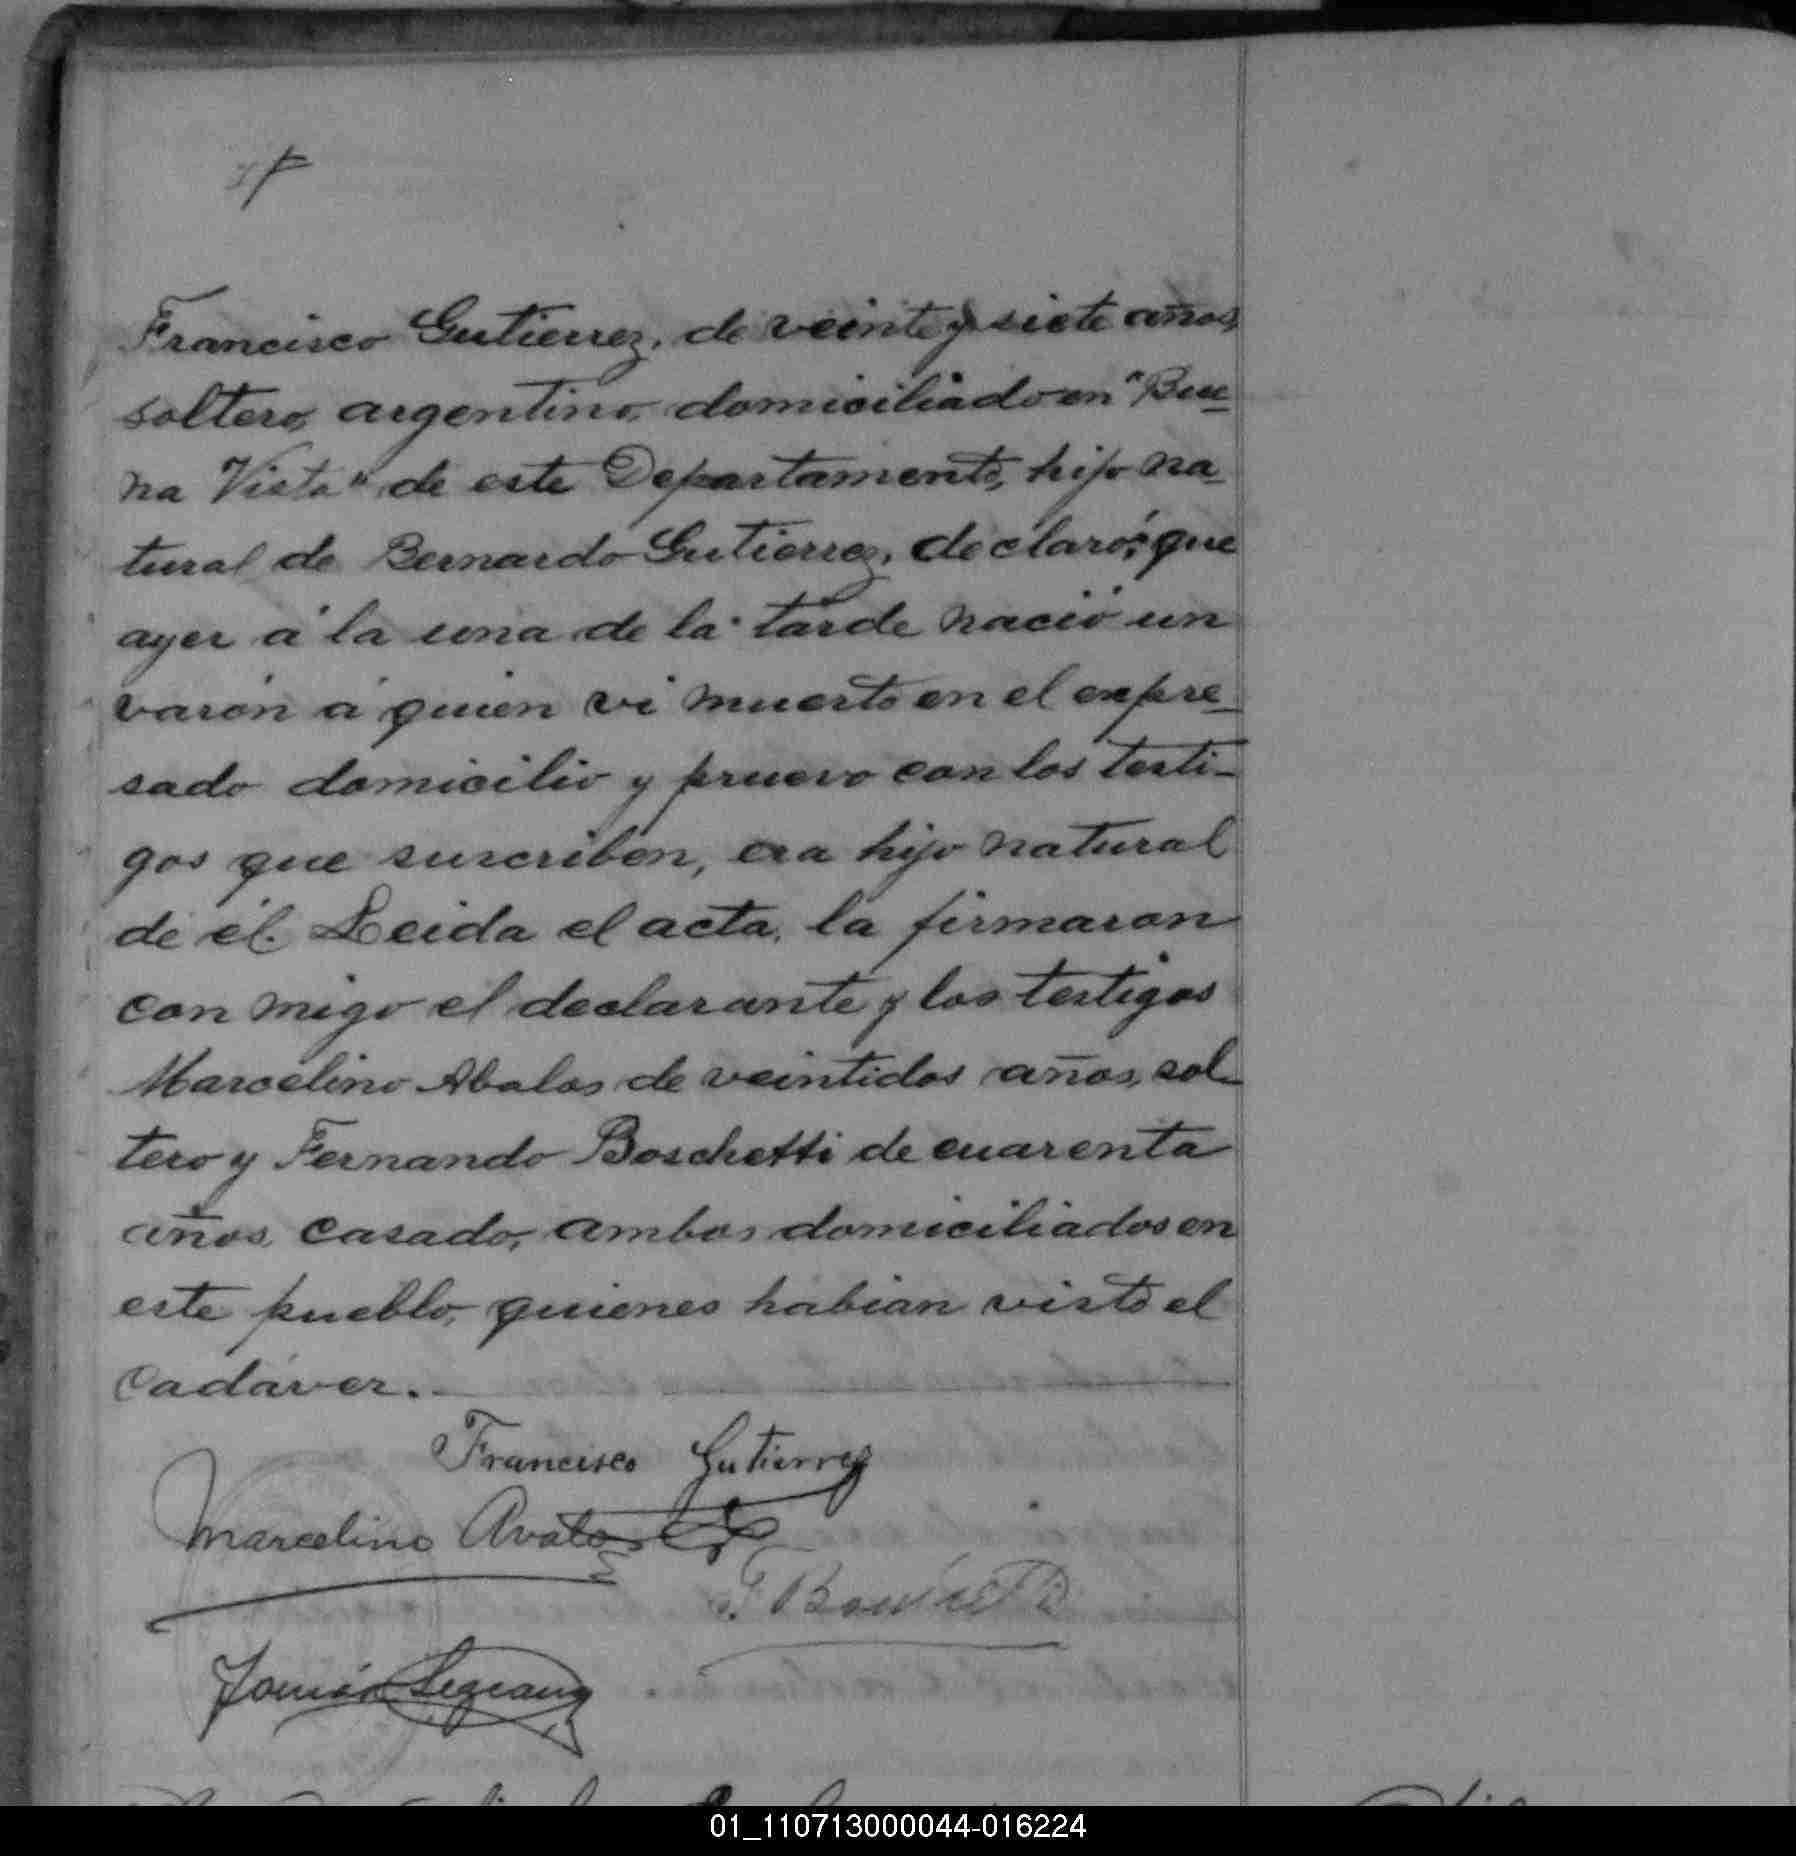 Francisco Gutierrez, de veinte y siete años,
soltero, argentino, domiciliado en "Bue-
na Vista" de este Departamento, hijo na-
tural de Bernardo Gutierrez, declaró: que
ayer á la una de la tarde nació un
varón á quien vi muerto en el expre-
sado domicilio y pruevo con los testi-
gos que suscriben, era hijo natural
de él. Leida el acta, la firmaron
con migo el declarante y los testigos
Marcelino Abalos de veintidos años, sol-
tero y Fernando Boschetti de cuarenta
años, casado, ambos domiciliados en
este pueblo, quienes habian visto el
cadáver.
Francisco Gutierrez
Marcelino Avalos
F. Boschetti
01_110713000044-016224